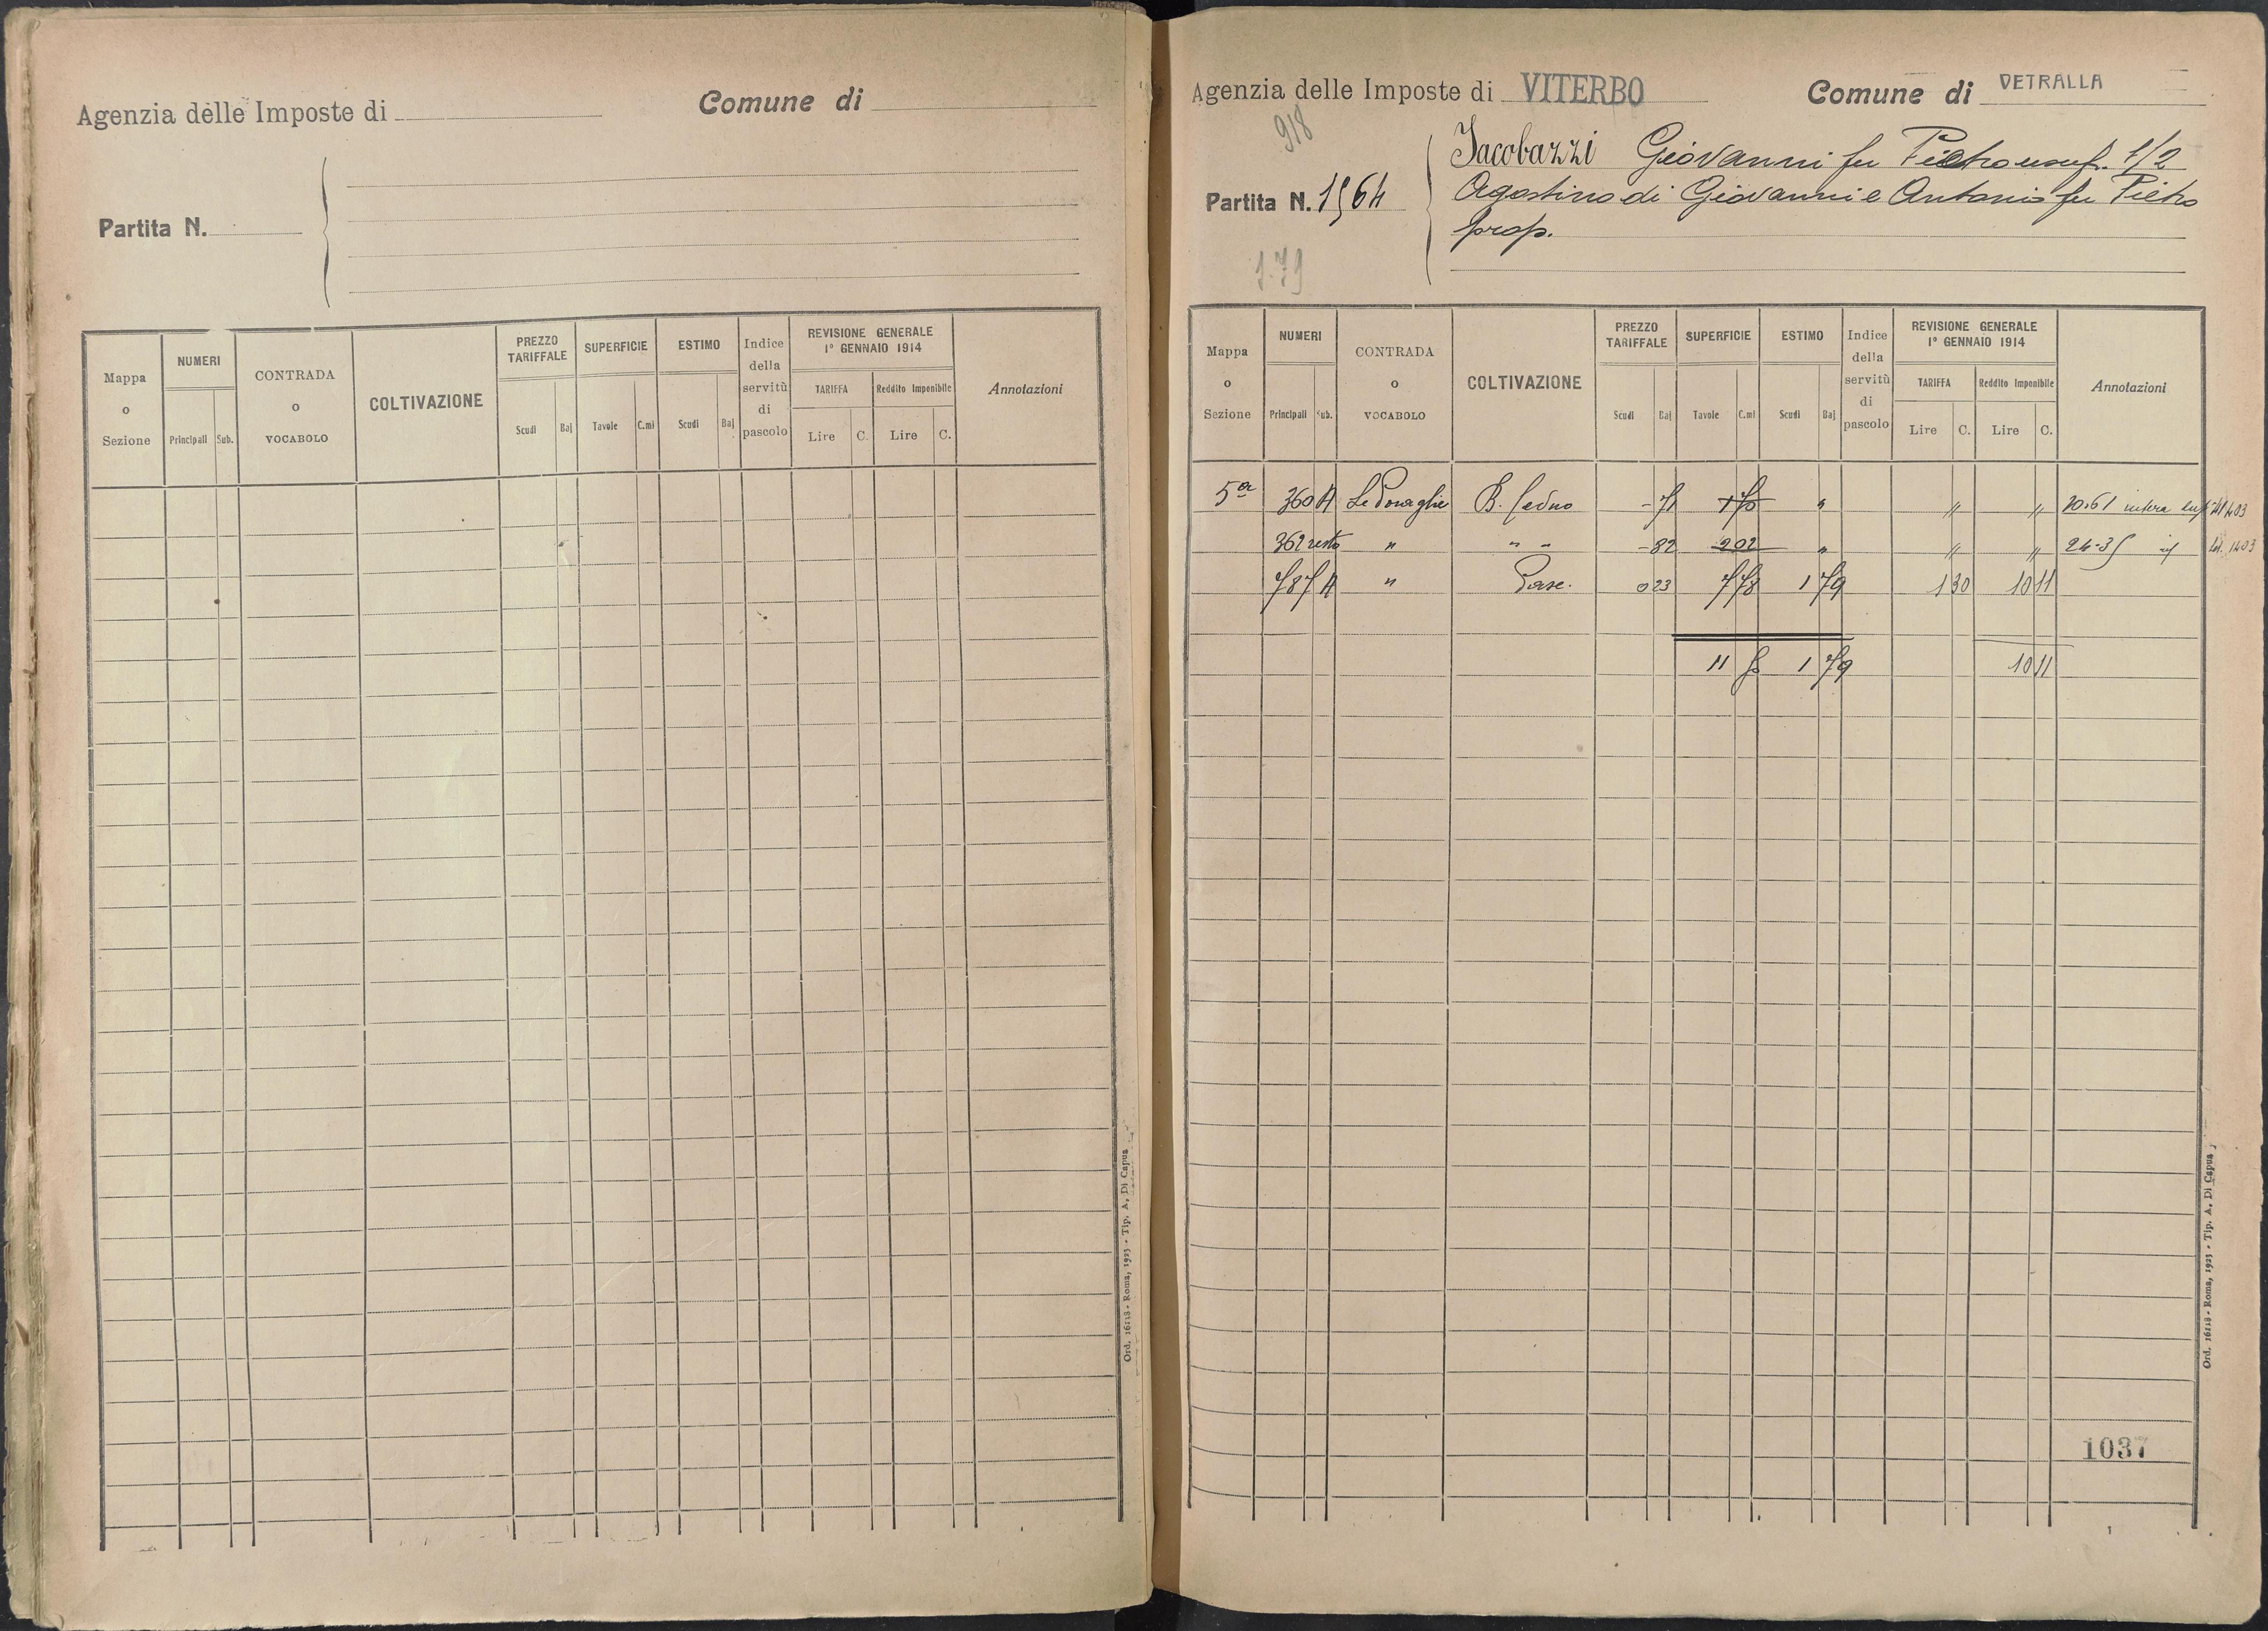 Agenzia delle Imposte di
Comune di
Partita N.
Mappa o Sezione
NUMERI
Principali
Sub.
CONTRADA o VOCABOLO
COLTIVAZIONE
PREZZO TARIFFALE
Scudi
Baj
SUPERFICIE
Tavole
C.mi
ESTIMO
Scudi
Baj
Indice della servitù di pascolo
REVISIONE GENERALE 1° GENNAIO 1914
TARIFFA
Lire
C.
Reddito Imponibile
Lire
C.
Annotazioni
Ord. 16118 - Roma, 1923 - Tip. A. Di Capua
Agenzia delle Imposte di VITERBO
Comune di VETRALLA
918
Partita N. 1964
Jacobazzi Giovanni fu Pietro usuf. 1/2
Agostino di Giovanni e Antonio fu Pietro
prop.
Mappa o Sezione
NUMERI
Principali
Sub.
CONTRADA o VOCABOLO
COLTIVAZIONE
PREZZO TARIFFALE
Scudi
Baj
SUPERFICIE
Tavole
C.mi
ESTIMO
Scudi
Baj
Indice della servitù di pascolo
REVISIONE GENERALE 1° GENNAIO 1914
TARIFFA
Lire
C.
Reddito Imponibile
Lire
C.
Annotazioni
5a 360 A B. Ceduo - 71 " " " 20.61 intera
362 resto " " " - 82 2 02 " " "
787 A " Pasc. 0 23 7 78 1 79 1 30 10 11
11 1 79 10 11
1037
Ord. 16118 - Roma, 1923 - Tip. A. Di Capua